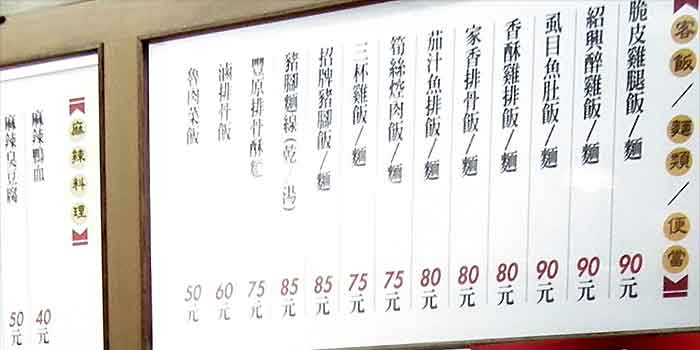 客飯/麵類/便當
脆皮雞腿飯/麵 90元
紹興醉雞飯/麵 90元
虱目魚肚飯/麵 90元
香酥雞排飯/麵 80元
家香排骨飯/麵 80元
茄汁魚排飯/麵 80元
筍絲焢肉飯/麵 75元
三杯雞飯/麵 75元
招牌豬腳飯/麵 85元
豬腳麵線(乾/湯) 85元
豐原排骨酥麵 75元
滷排骨飯 60元
魯肉菜飯 50元
麻辣料理
麻辣鴨血 40元
麻辣臭豆腐 50元